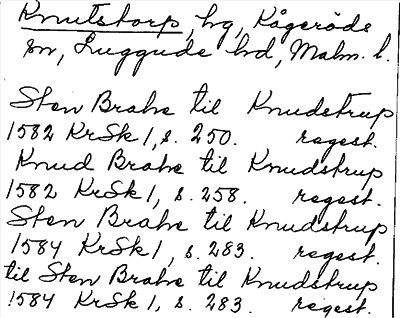 Knutstorp, hg, Kågeröds
sn, Luggude hd, Malm. l.
Sten Brahe til Knudstrup
1582 KrSk 1, s. 250. regest.
Knud Brahe til Knudstrup
1582 KrSk 1, s. 258. regest.
Sten Brahe til Knudstrup
1584 KrSk 1, s. 283. regest.
til Sten Brahe til Knudstrup
1584 KrSk 1, s. 283. regest.